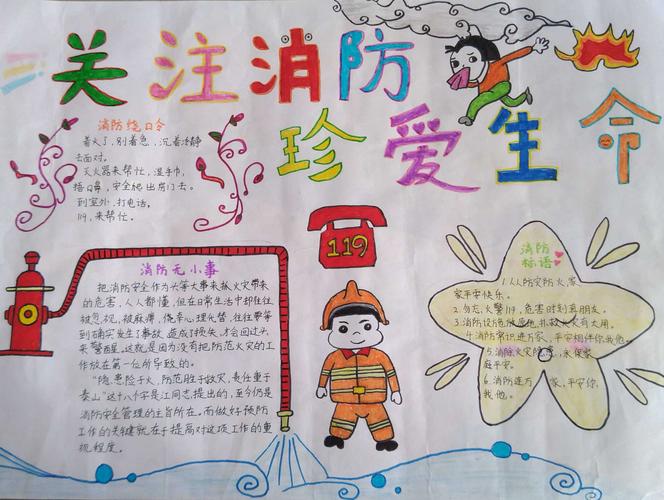 关注消防
珍爱生命
消防绕口令
着火了,别着急,沉着冷静
去面对。
灭火器来帮忙,湿手巾,
捂口鼻,安全跑出房门去。
到室外,打电话,
119,来帮忙。
119
消防无小事
把消防安全作为头等大事来抓,火灾带来
的危害,人人都懂,但在日常生活中却往往
被忽视,被麻痹,侥幸心理代替,往往要等
到确实发生了事故,造成了损失,才会回过头
来警醒,这就是因为没有把防范火灾的工
作放在第一位所导致的。
"隐患险于火,防范胜于救灾,责任重于
泰山"这十八个字是江同志提出的,至今仍是
消防安全管理的主旨所在。而做好预防
工作的关键就在于提高对这项工作的重
视程度。
消防
标语
1.人人防灾防火,家
家平安快乐。
2.勿忘火警119,危害时刻真朋友。
3.消防设施放愿他,救火火有大用。
4.消防常识进万家,平安相伴你我他。
5.消除火灾隐患,永保家
庭平安。
6.消防连万家,平安你、
我他。